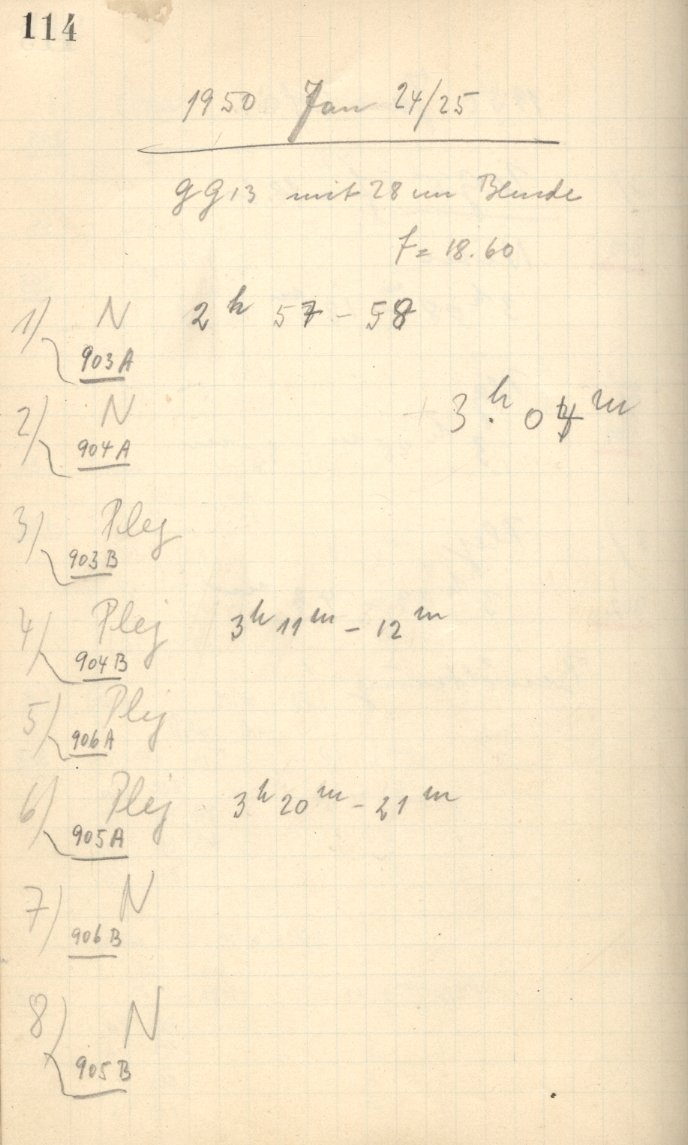 114
1950 Jan 24/25
GG13 mit 28 cm Blende
F= 18.60
1) N 2 h 57 - 58
903A
2) N 3 h 04 m
904A
3) Plej
903B
4) Plej 3 h 11 m - 12 m
904B
5) Plej
906A
6) Plej 3 h 20 m - 21 m
905A
7) N
906B
8) N
905B